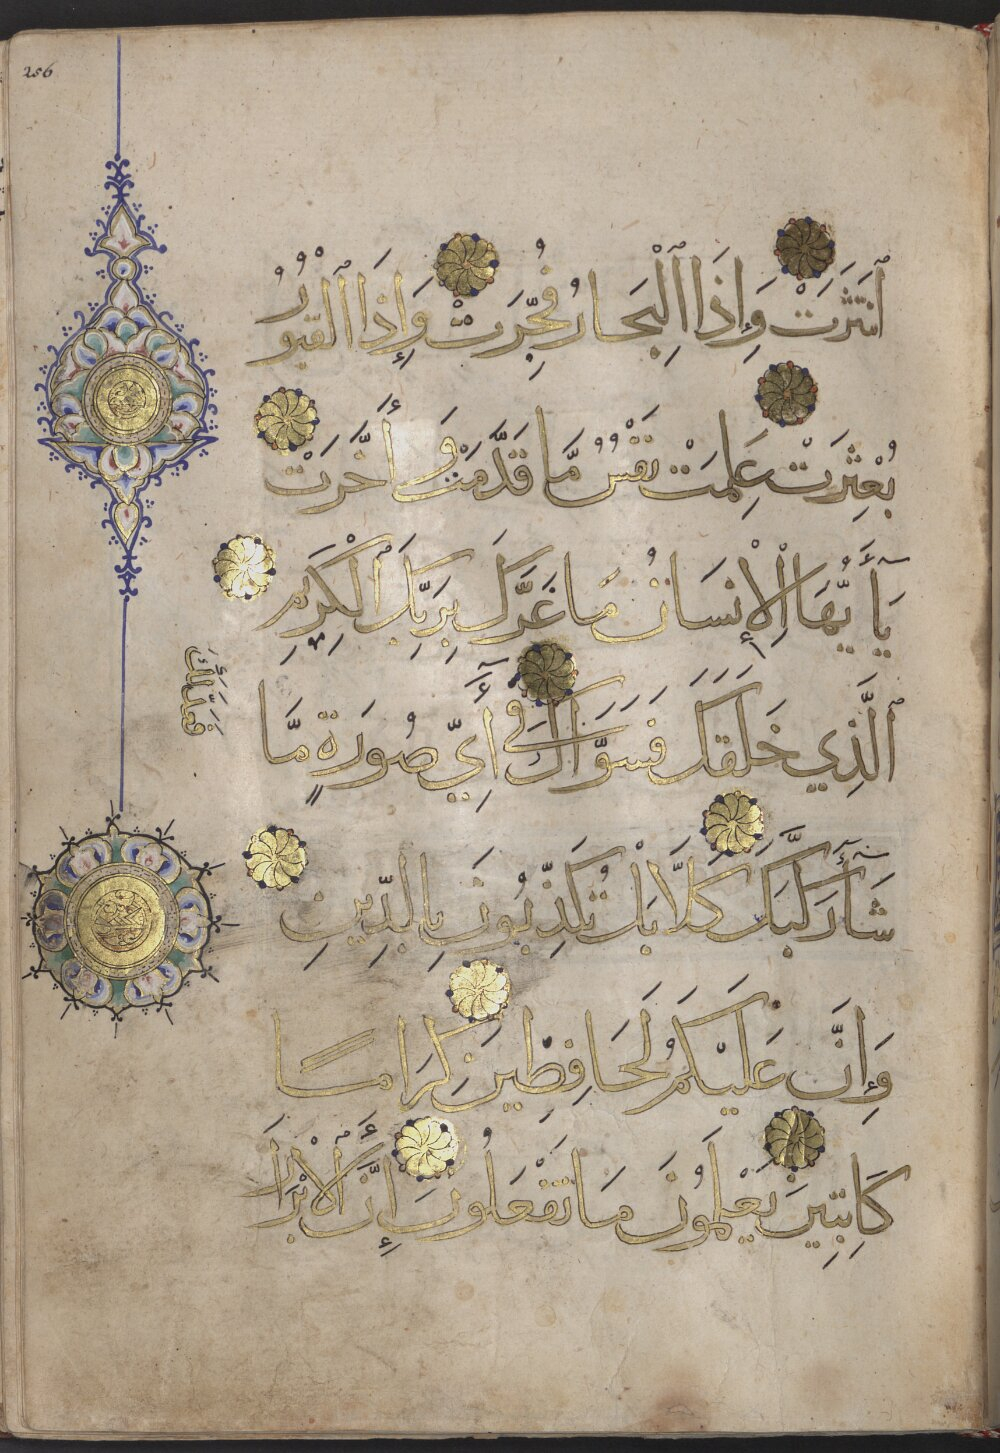 256
ٱنتَثَرَتْ وَإِذَا ٱلْبِحَارُ فُجِّرَتْ وَإِذَا ٱلْقُبُورُ
بُعْثِرَتْ عَلِمَتْ نَفْسٌ مَّا قَدَّمَتْ وَأَخَّرَتْ
يَٰٓأَيُّهَا ٱلْإِنسَانُ مَا غَرَّكَ بِرَبِّكَ ٱلْكَرِيمِ
ٱلَّذِي خَلَقَكَ فَسَوَّاكَ فِيٓ أَيِّ صُورَةٍ مَّا
فَعَدَلَكَ
شَآءَ رَكَّبَكَ كَلَّا بَلْ تُكَذِّبُونَ بِالدِّينِ
وَإِنَّ عَلَيْكُمْ لَحَافِظِينَ كِرَامًا
كَاتِبِينَ يَعْلَمُونَ مَا تَفْعَلُونَ إِنَّ ٱلْأَبْرَارَ